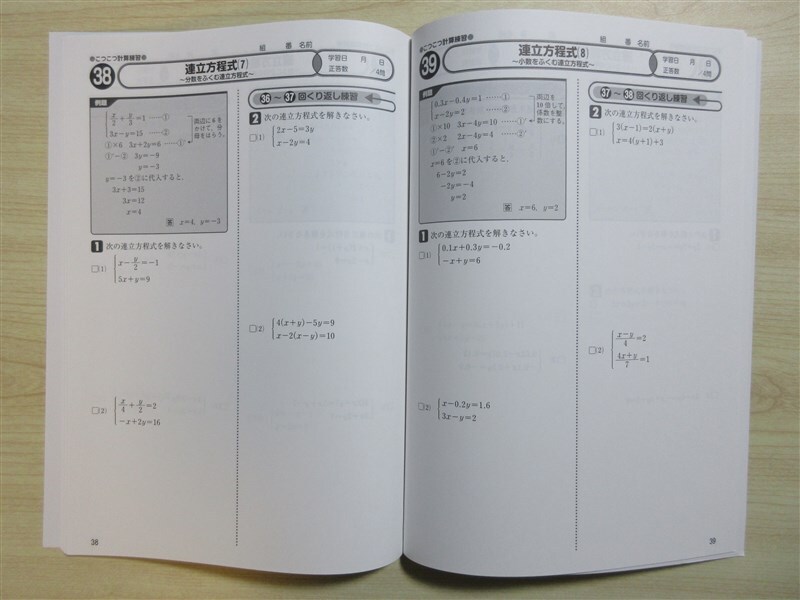 こつこつ計算練習
組 番 名前
38 連立方程式(7)
〜分数をふくむ連立方程式〜
学習日 月 日
正答数 /4問
例題
x/2+y/3=1 ……①
3x−y=15 ……②
①×6 3x+2y=6 ……①′
①′−② 3y=−9
y=−3
両辺に6を
かけて、分
母をはらう。
y=−3を②に代入すると、
3x+3=15
3x=12
x=4
答 x=4, y=−3
1 次の連立方程式を解きなさい。
(1) x−y/2=−1
5x+y=9
(2) x/4+y/2=2
−x+2y=16
36〜37 回くり返し練習
2 次の連立方程式を解きなさい。
(1) 2x−5=3y
x−2y=4
(2) 4(x+y)−5y=9
x−2(x−y)=10
38
こつこつ計算練習
組 番 名前
39 連立方程式(8)
〜小数をふくむ連立方程式〜
学習日 月 日
正答数 /4問
例題
0.3x−0.4y=1 ……①
x−2y=2 ……②
①×10 3x−4y=10 ……①′
②×2 2x−4y=4 ……②′
①′−②′ x=6
両辺を
10倍して、
係数を整
数にする。
x=6を②に代入すると、
6−2y=2
−2y=−4
y=2
答 x=6, y=2
1 次の連立方程式を解きなさい。
(1) 0.1x+0.3y=−0.2
−x+y=6
(2) x−0.2y=1.6
3x−y=2
37〜38 回くり返し練習
2 次の連立方程式を解きなさい。
(1) 3(x−1)=2(x+y)
x=4(y+1)+3
(2) (x−y)/4=2
(4x+y)/7=1
39